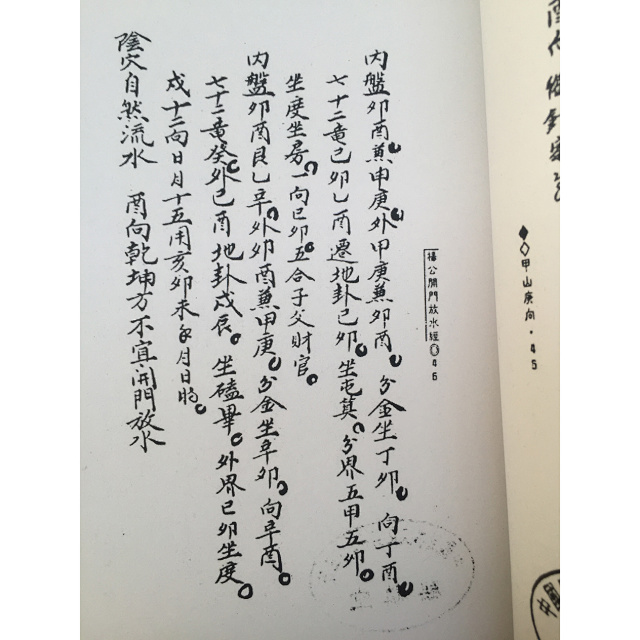 甲山庚向・45
楊公開門放水經 46
內盤卯酉兼申庚外甲庚兼卯酉。分金坐丁卯。向丁酉。
七十二竜己卯乙酉遷地卦己卯。坐屯莫。分界五甲五卯。
坐度坐房。一向己卯五合子父財官。
內盤卯酉艮乙辛。外卯酉兼甲庚。分金坐辛卯。向辛酉。
七十二竜癸。外已酉地卦戊辰。坐磕畢。外界已卯坐度。
戍十二向日月十五用亥卯未年月日時。
陰穴自然流水 酉向乾坤方不宜開門放水